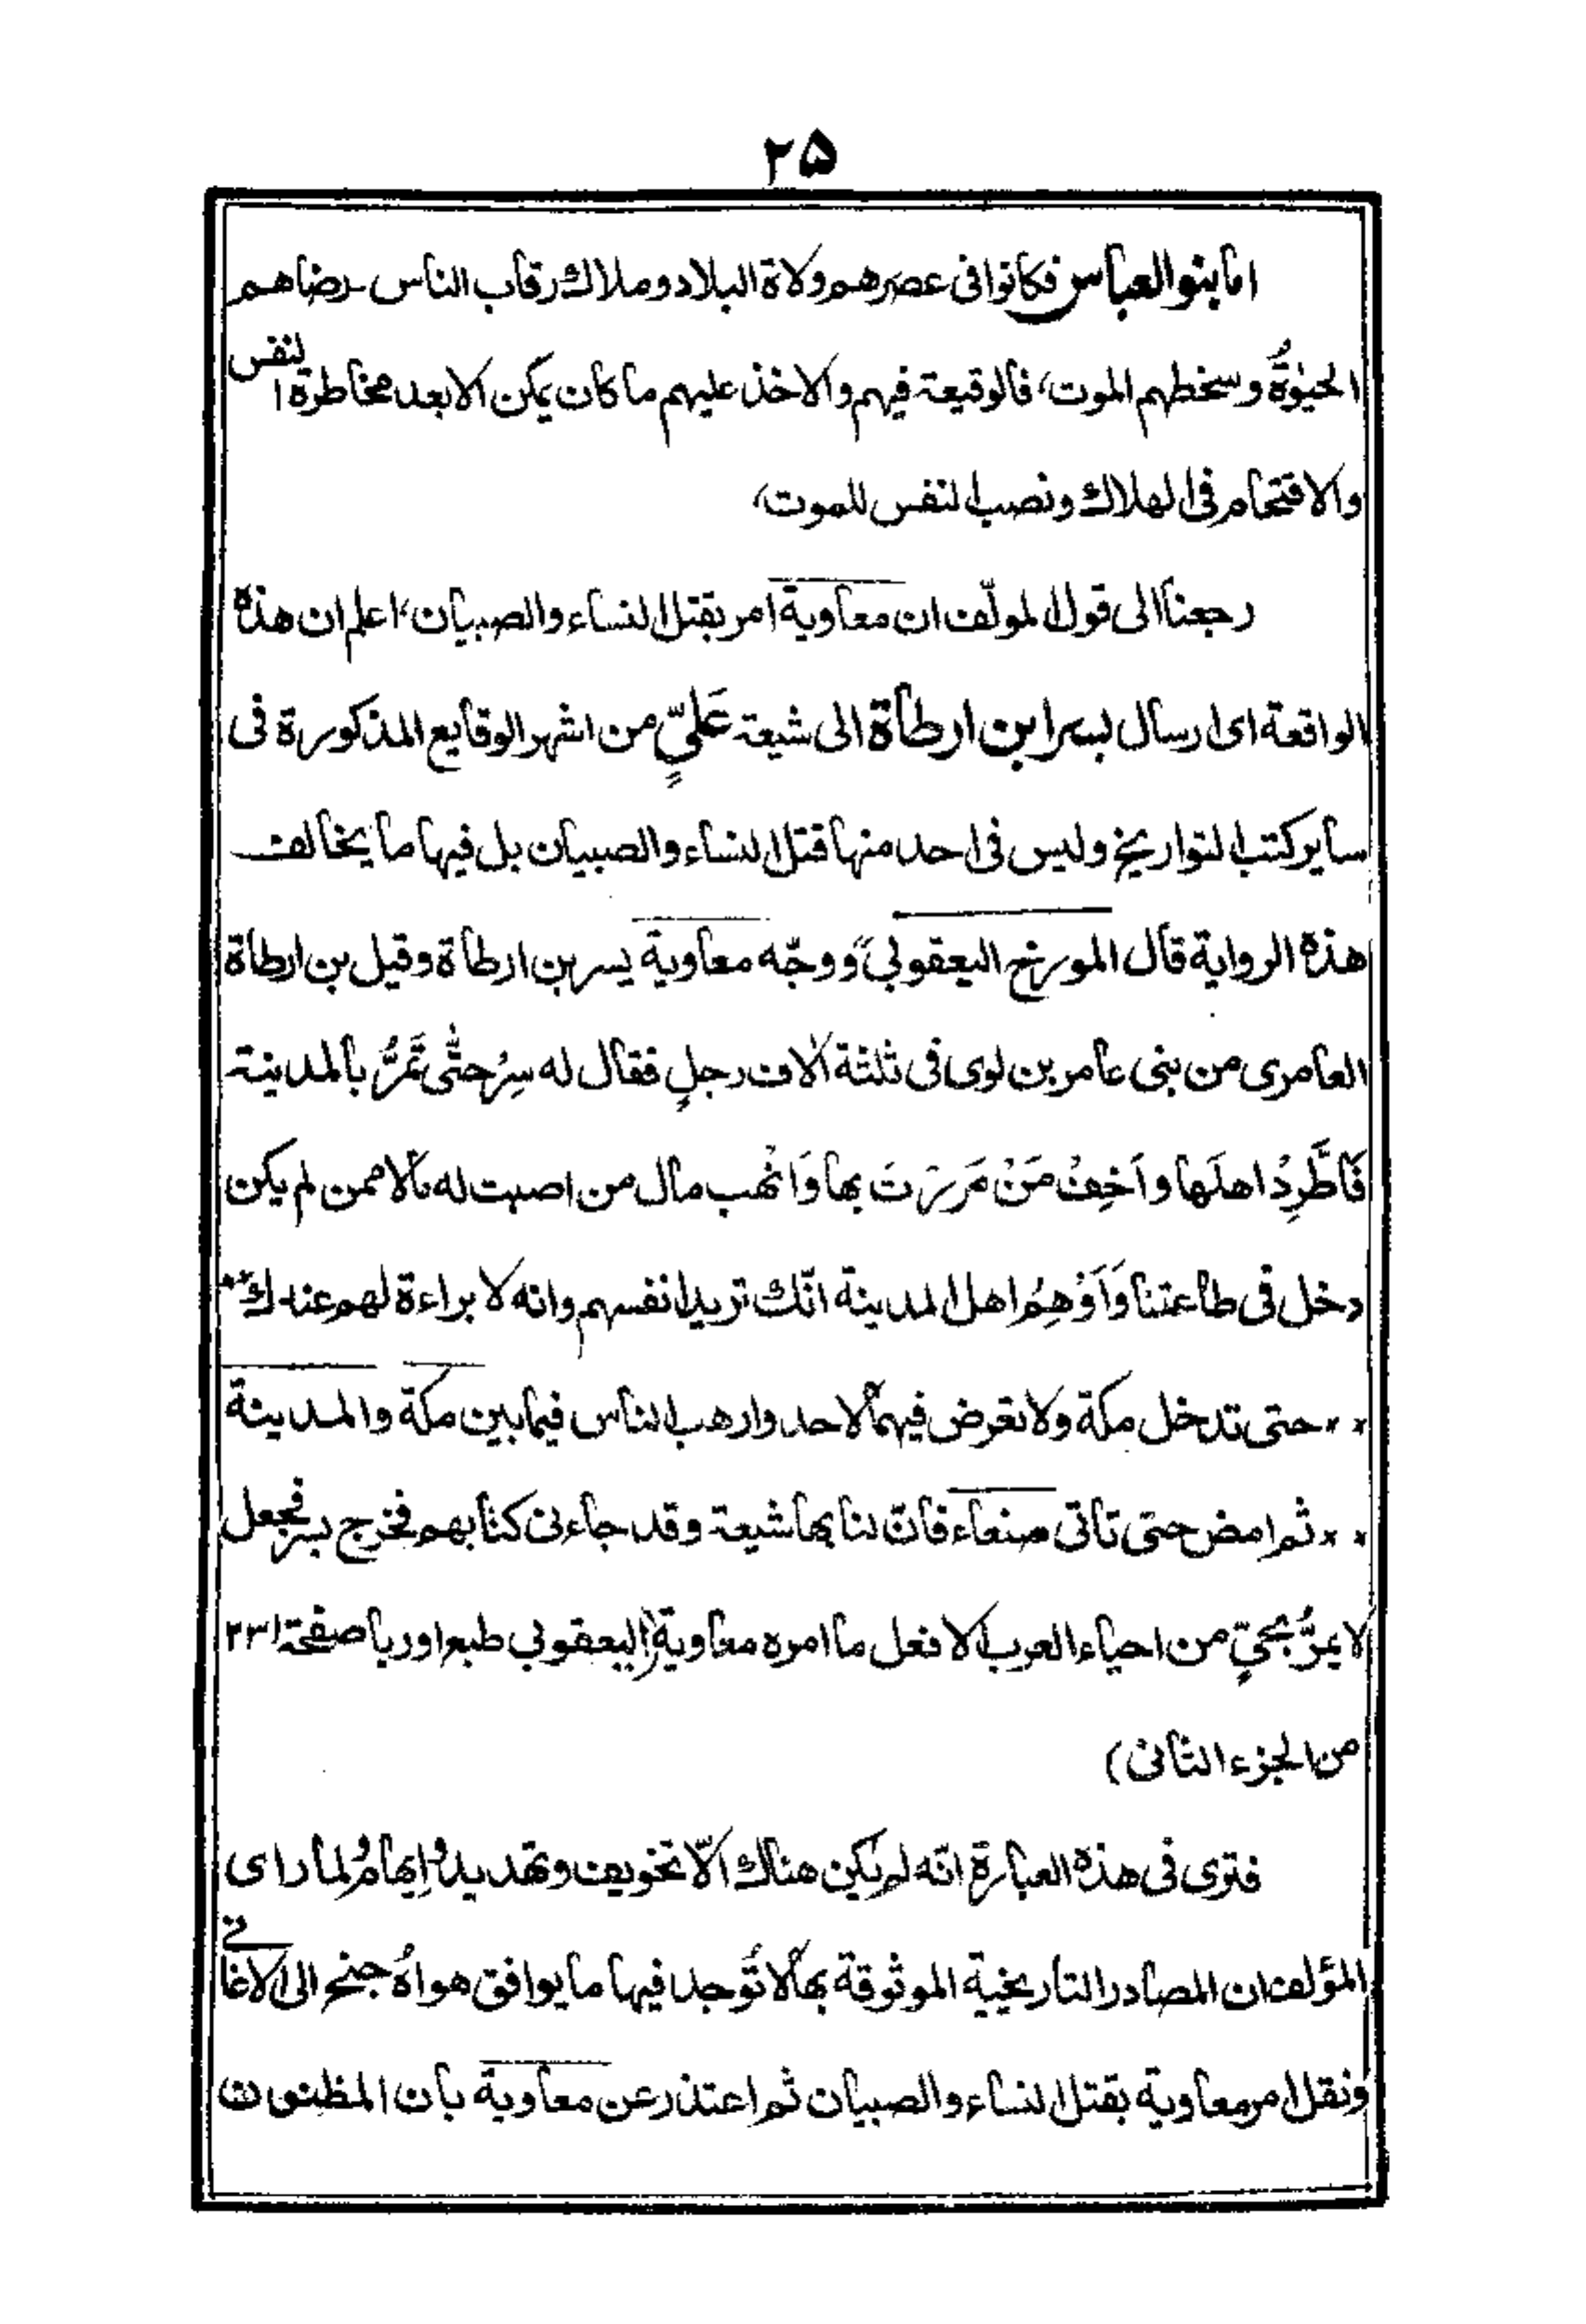 ٢٥
اما بنو العباس فكانوا فى عصرهم ولاة البلاد و ملاك رقاب الناس - رضاهم
الحيٰوةُ وسخطهم الموت، فالوقيعة فيهم والاخذ عليهم ما كان يمكن الا بعد مخاطرة النفس
والاقتحام فى الهلاك ونصب النفس للموت،
رجعنا الى قول المولّف ان معاوية امر بقتل النساء والصبيان، اعلم ان هذه
الواقعة اى ارسال بسر ابن ارطاة الى شيعة عَليٍّ من اشهر الوقايع المذكورة فى
ساير كتب التواريخ وليس فى احد منها قتل النساء والصبيان بل فيها ما يخالف
هذه الرواية قال المورخ اليعقوبي "ووجّه معاوية بسر بن ارطاة وقيل بن ارطاة
العامرى من بنى عامر بن لوى فى ثلثة آلاف رجلٍ فقال له سِرْ حتّٰى تَمَرُّ بالمدينة
فَاطَّرِدْ اهلَها واَخِفْ مَنْ مَررْتَ بها وَانْهب مال من اصبت له مالا ممن لم يكن
دخل فى طاعتنا وَاَوْهِمْ اهل المدينة انّك تريد انفسهم وانه لا براءة لهم عندك **
** حتى تدخل مكة ولا تعرض فيها لاحد وارهب الناس فيما بين مكة والمدينة
** ثم امض حتى تاتى صنعاء فانّ لنا بها شيعة وقد جاءنى كتابهم فخرج بسر فجعل
لا يمرُّ بحيٍّ من احياء العرب الا فعل ما امره معاوية (اليعقوبي طبع اوربا صفحة ٢٣١
من الجزء الثانى)
فترى فى هذه العبارة انّه لم يكن هناك الّا تخويف وتهديد وإيهام ولما راى
المؤلف ان المصادر التاريخية الموثوقة بها لا تُوجد فيها ما يوافق هواهُ جنح الى الاغانى
ونقل امر معاوية بقتل النساء والصبيان ثم اعتذر عن معاوية بان المظنون